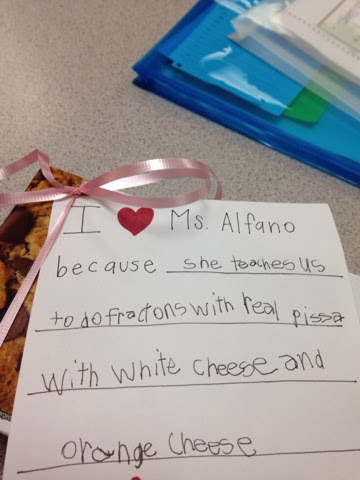 I ❤ Ms. Alfano
because she teaches us
to do fractons with real pissa
with white cheese and
orange cheese